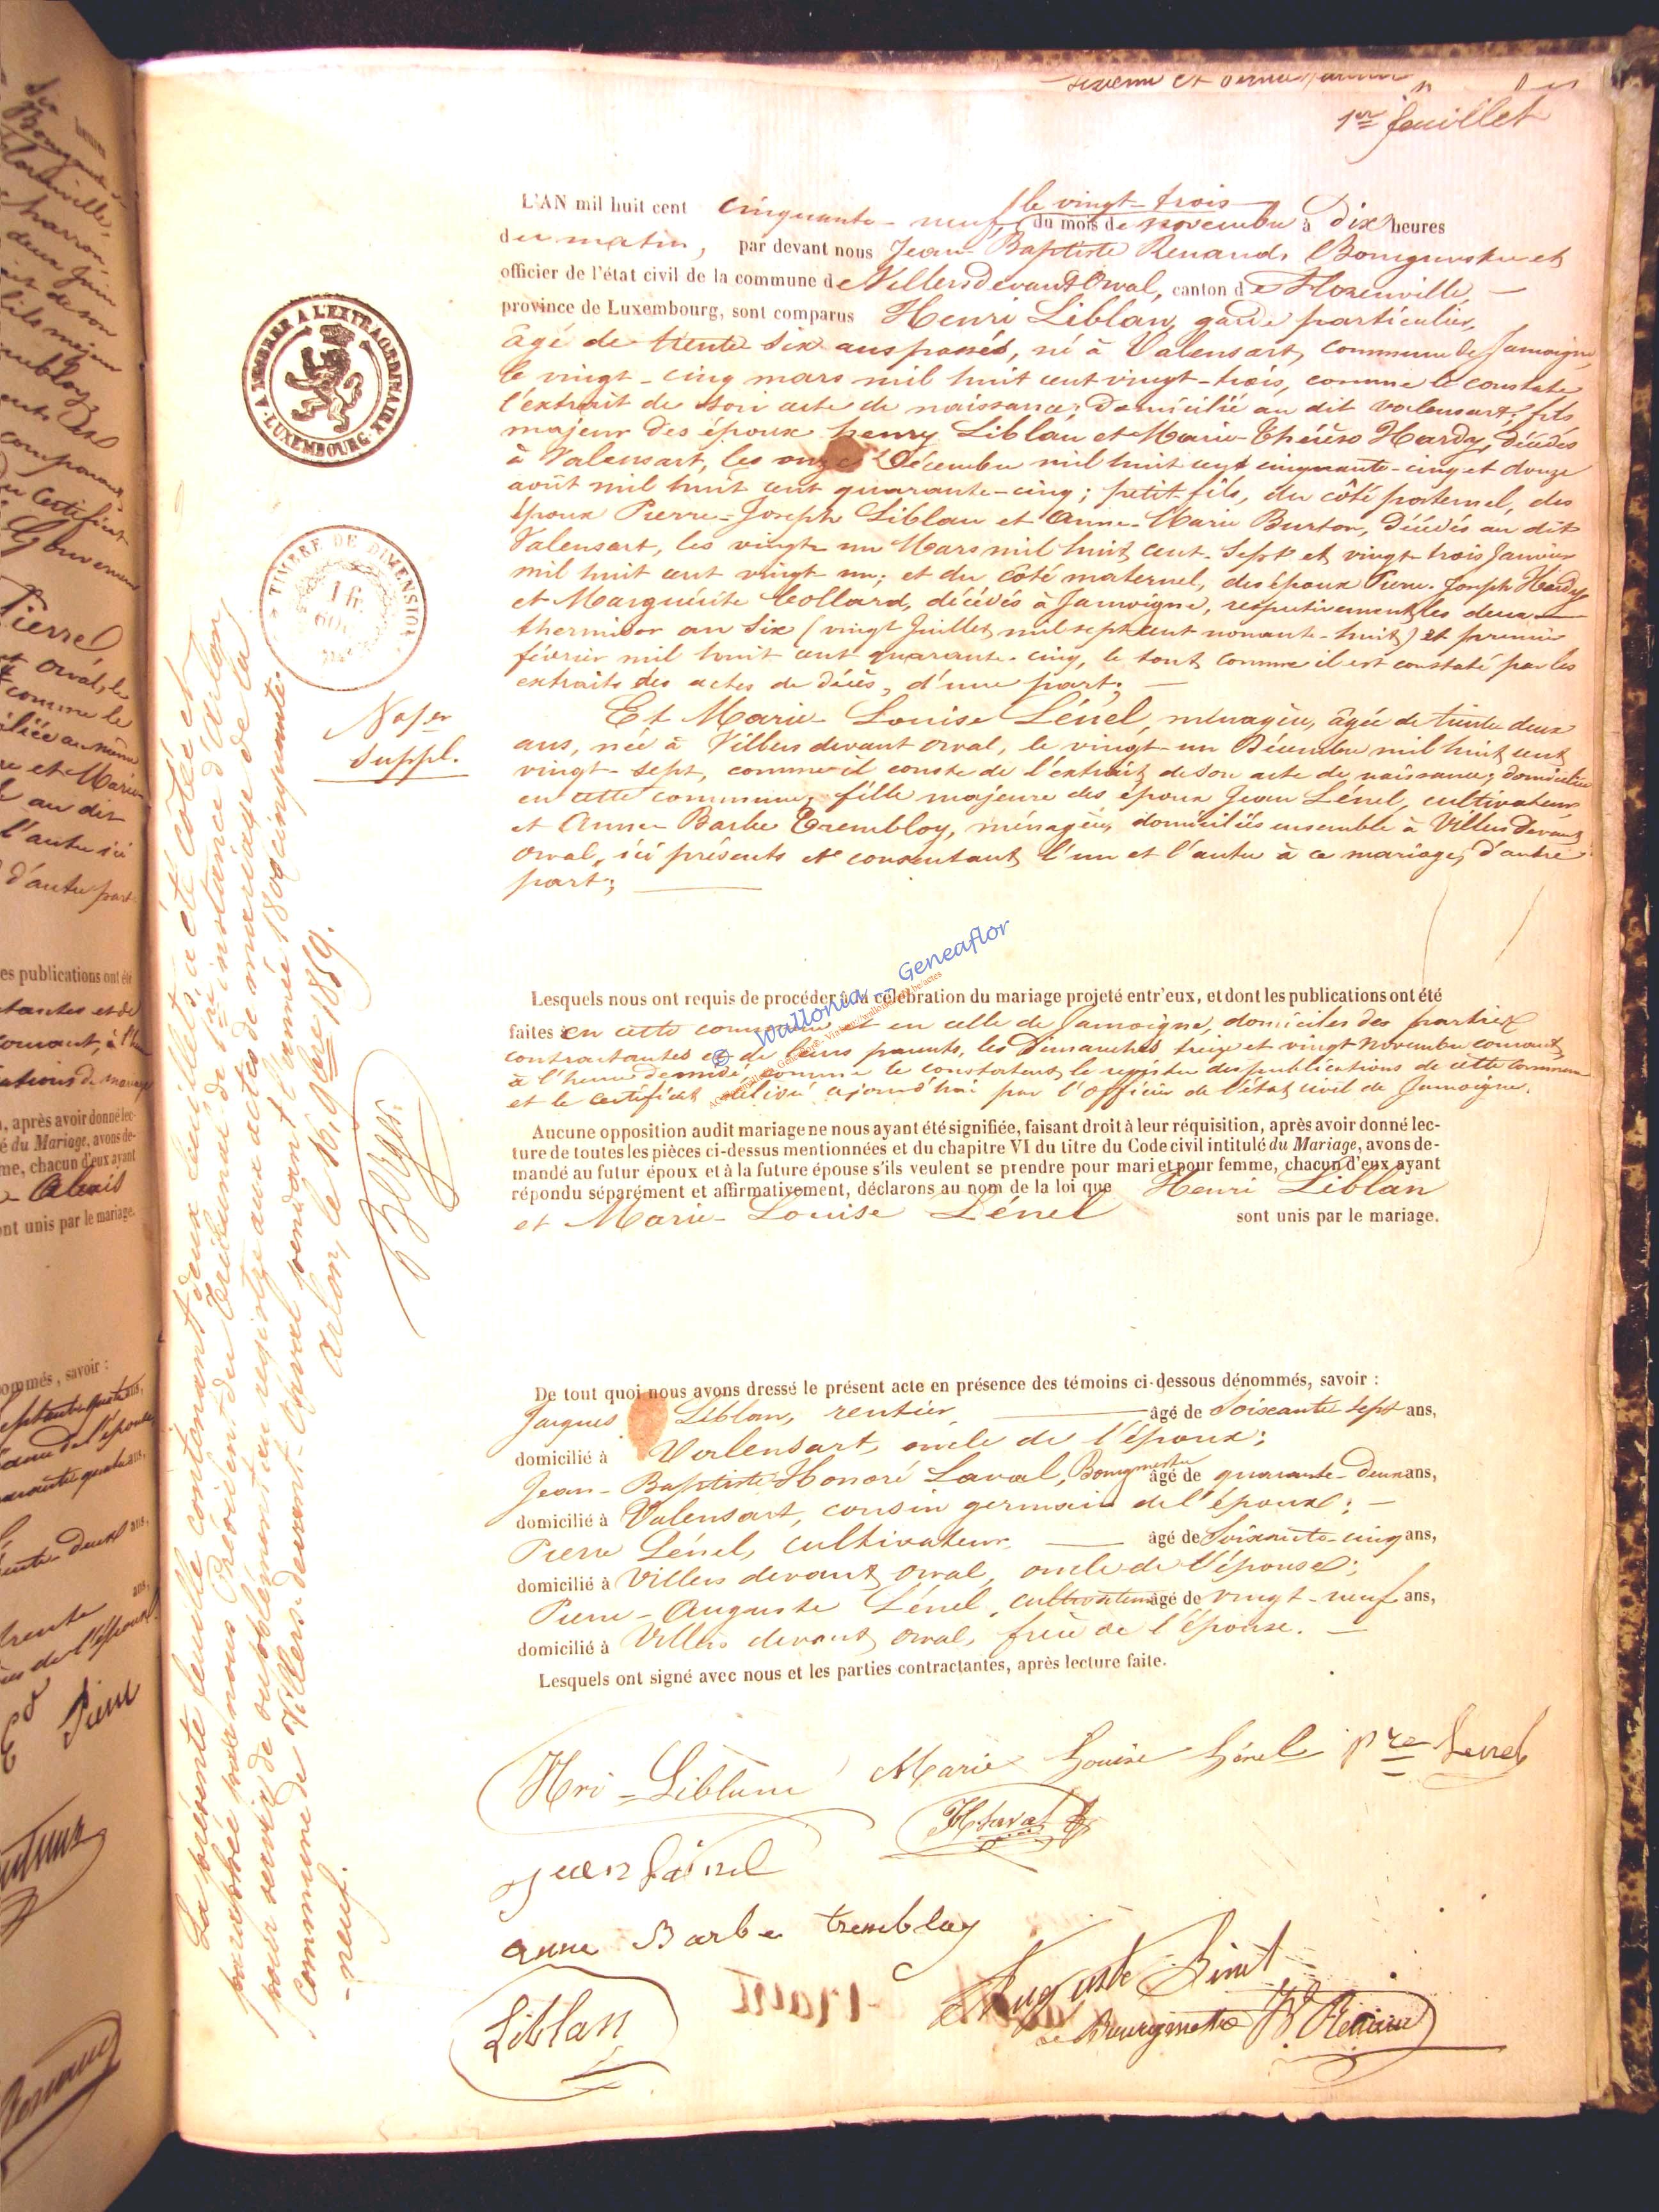 1er feuillet
L'AN mil huit cent cinquante-neuf, le vingt-trois du mois de novembre à dix heures
du matin, par devant nous Jean-Baptiste Renauld, Bourgmestre et
officier de l'état civil de la commune de Villers devant Orval, canton de Florenville,
province de Luxembourg, sont comparus Henri Liblan, garde particulier,
âgé de trente six ans passés, né à Valensart, commune de Jamoigne,
le vingt-cinq mars mil huit cent vingt-trois, comme le constate
l'extrait de son acte de naissance; domicilié au dit valensart; fils
majeur des époux henry Liblan et Marie-Thérèse Hardy, décédés
à Valensart, les onze Décembre mil huit cent cinquante-cinq et douze
août mil huit cent quarante-cinq; petit-fils, du côté paternel, des
époux Pierre-Joseph Liblan et Anne-Marie Burton, décédés au dit
Valensart, les vingt un Mars mil huit cent-sept et vingt-trois Janvier
mil huit cent vingt-un; et du côté maternel, des époux Pierre-Joseph Hardy
et Marguérite Collard, décédés à Jamoigne, respectivement les deux
thermidor an Six (vingt Juillet mil sept cent nonante-huit) et premier
février mil huit cent quarante-cinq, le tout comme il est constaté par les
extraits des actes de décès, d'une part;
Et Marie-Louise Lénel, ménagère, âgée de trente deux
ans, née à Villers devant orval, le vingt-un Décembre mil huit cent
vingt-sept, comme il conste de l'extrait de son acte de naissance; domiciliée
en cette commune; fille majeure des époux Jean Lénel, cultivateur
et Anne-Barbe Trembloy, ménagère, domiciliés ensemble à Villers devant
Orval, ici présents et consentant l'un et l'autre à ce mariage, d'autre
part;
Lesquels nous ont requis de procéder à la célébration du mariage projeté entr'eux, et dont les publications ont été
faites en cette commune et en celle de Jamoigne, domiciles des parties
contractantes et de leurs parents, les Dimanches treize et vingt Novembre courant,
à l'heure de midi comme le constatent le registre des publications de cette commune
et le certificat délivré ajourd'hui par l'Officier de l'état civil de Jamoigne.
Aucune opposition audit mariage ne nous ayant été signifiée, faisant droit à leur réquisition, après avoir donné lec-
ture de toutes les pièces ci-dessus mentionnées et du chapitre VI du titre du Code civil intitulé du Mariage, avons de-
mandé au futur époux et à la future épouse s'ils veulent se prendre pour mari et pour femme, chacun d'eux ayant
répondu séparément et affirmativement, déclarons au nom de la loi que Henri Liblan
et Marie-Louise Lénel sont unis par le mariage.
De tout quoi nous avons dressé le présent acte en présence des témoins ci-dessous dénommés, savoir :
Jacques Liblan, rentier âgé de Soixante sept ans,
domicilié à Valensart, oncle de l'époux;
Jean-Baptiste Honoré Laval, Bourgmestre âgé de quarante-deux ans,
domicilié à Valensart, cousin germain de l'époux;
Pierre Lénel, cultivateur âgé de Soixante-cinq ans,
domicilié à Villers devant orval, oncle de l'épouse;
Pierre-Auguste Lénel, cultivateur âgé de vingt-neuf ans,
domicilié à Villers devant orval, frère de l'épouse.
Lesquels ont signé avec nous et les parties contractantes, après lecture faite.
Hri-Liblan Marie Louise Lénel Pre Lenel
HLaval
jean Lainel
anne Barbe tremblay
Auguste Linel
Liblan
Le Bourgmestre
A TIMBRER A L'EXTRAORDINAIRE
LUXEMBOURG
TIMBRE DE DIMENSION
1 fr.
60
No 1er
Suppl.
La présente feuille contenant deux feuillets, a été cotée et
paraphée par nous Président du Tribunal de 1re instance d'Arlon
pour servir de supplément au registre aux actes de mariage de la
commune de Villers-devant-Orval pendant l'année 1800 cinquante
-neuf.
Arlon, le 16, 9bre 1859.
© Wallonia - Geneaflor